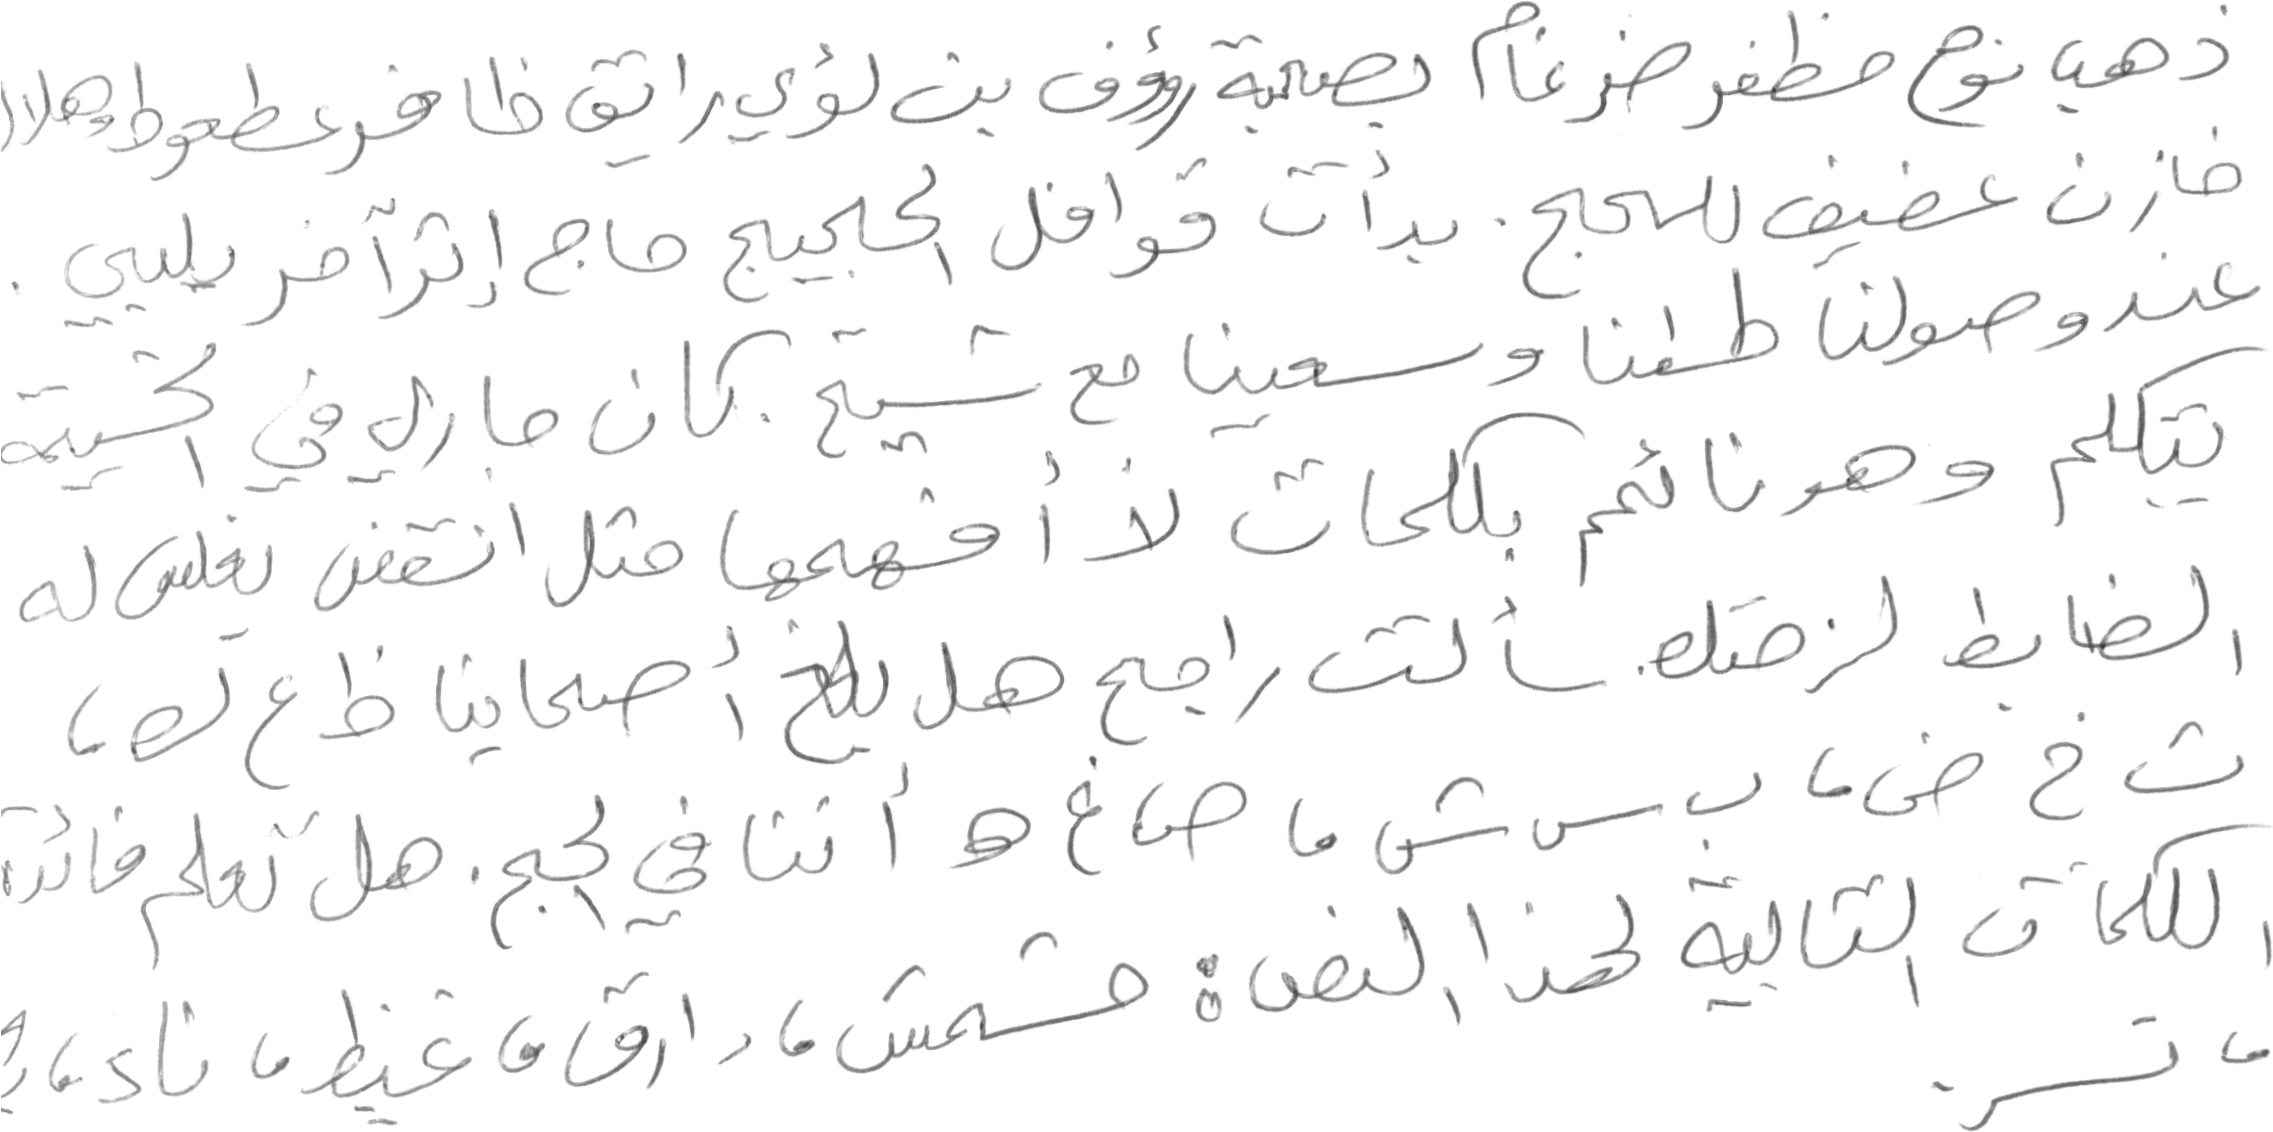 ذهب نوح مظفر ضرغام بصحبة رؤوف بن لؤي رائق ظافر عطعوط وهلال
خازن غضيف للحج. بدأت قوافل الحجيج حاج إثر آخر يلبي.
عند وصولنا طفنا وسعينا مع شيخ. كان جاري في الخيمة
يتكلم وهو نائم بكلمات لا أفهمها مثل انتقض يغلس له
الضابط لزمتك. سألت راجح هل بلغ أصحابنا ظ ع ك ص ،
ث خ ض ، ب س ش ، ص غ ه أننا في الحج. هل تعلم فائدة
الكلمات التالية لهذا النص: مشمش ، دارق ، غيظ ، نأى ،
، تسر.